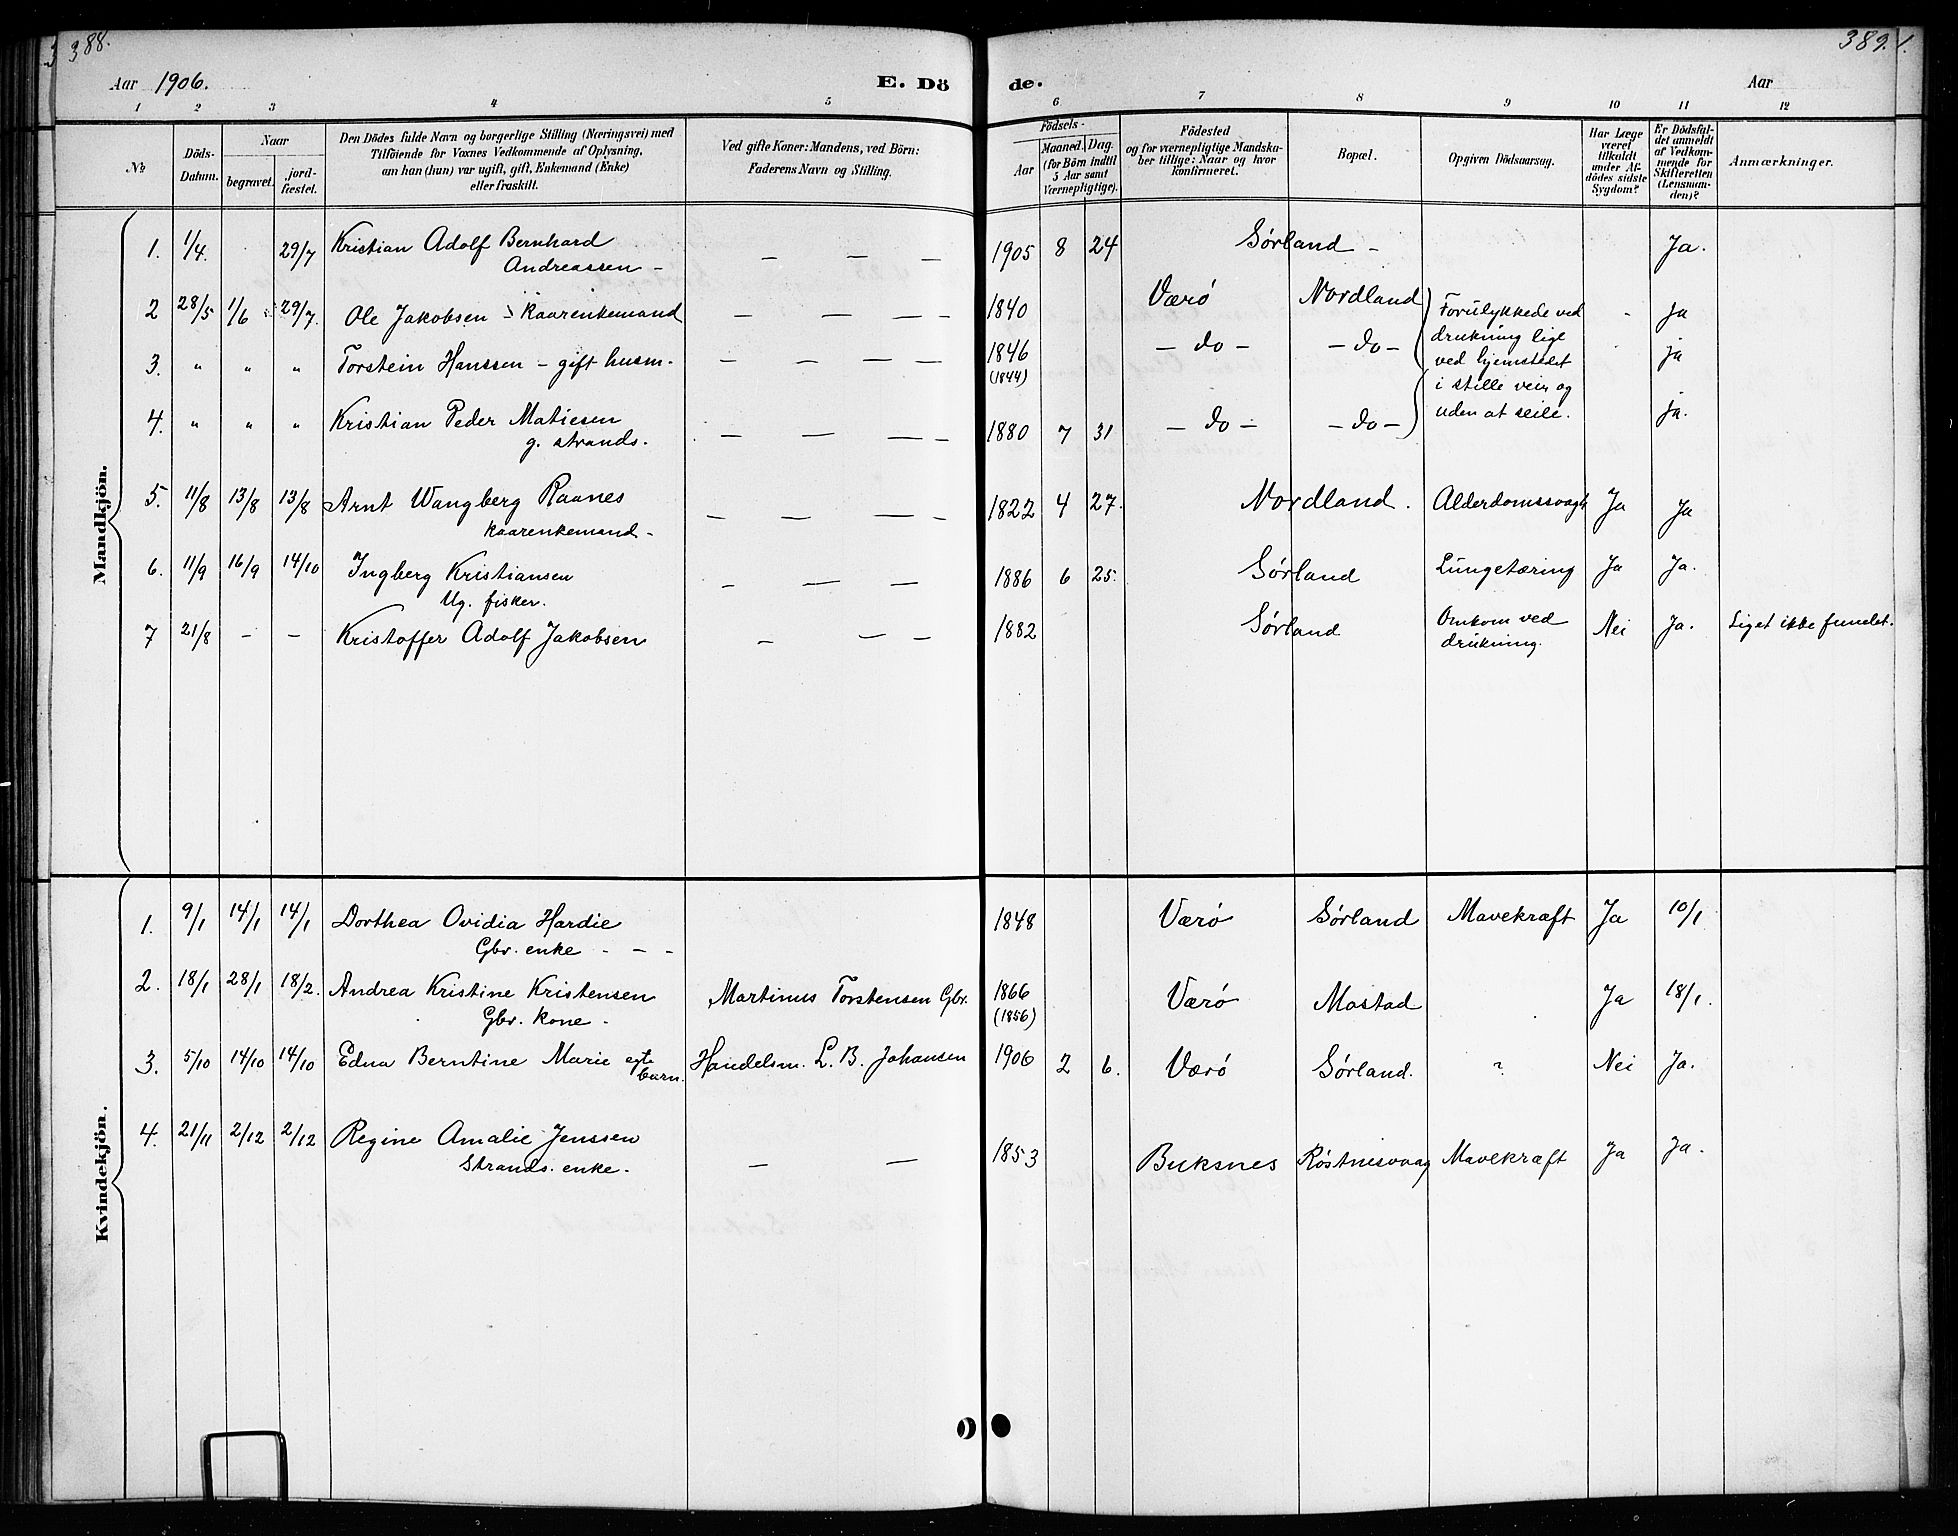 388.
389.
Aar 1906.
E. Dö
de.
Aar
1 2 3 4 5 6 7 8 9 10 11 12
№
Döds-Datum.
Naar
begravet.
jord-fæstet.
Den Dödes fulde Navn og borgerlige Stilling (Næringsvei) med
Tilföiende for Voxnes Vedkommende af Oplysning,
om han (hun) var ugift, gift, Enkemand (Enke)
eller fraskilt.
Ved gifte Koner: Mandens, ved Börn:
Faderens Navn og Stilling.
Födsels-
Aar
Maaned. Dag.
(for Börn indtil
5 Aar samt
Værnepligtige).
Födested
og for værnepligtige Mandska-
ber tillige: Naar og hvor
konfirmeret.
Bopæl.
Opgiven Dödsaarsag.
Har Læge
været
tilkaldt
under Af-
dödes sidste
Sygdom?
Er Dödsfal-
det anmeldt
af Vedkom-
mende for
Skifteretten
(Lensman-
den)?
Anmærkninger.
Mandkjön.
1. 1/4. 29/7 Kristian Adolf Bernhard
Andreassen – — — — 1905 8 24 Sørland – Ja.
2 28/5 1/6 29/7. Ole Jakobsen kaarenkemand — — — — 1840 Værö Nordland Forulykkede ved ja
3. " " " Torstein Hanssen – gift husm. — — — — 1846 – do – – do – drukning lige ja
(1844) ved hjemstedet
i stille veir og
4. " " " Kristian Peder Matiesen uden at seile. ja.
g. strands. — — — — 1880 7 31 – do – – do –
5. 11/8 13/8 13/8 Arnt Wangberg Raanes 1822 4 27. Nordland. Alderdomssvagh Ja Ja
kaarenkemand – — — — —
6. 11/9 16/9 14/10 Ingberg Kristiansen — — — 1886 6 25. Sørland Lungetæring Ja Ja.
Ug. fisker.
7 21/8 – – Kristoffer Adolf Jakobsen — — — 1882 Sørland Omkom ved Nei Ja. Liget ikke fundet.
drukning.
Kvindekjön.
1. 9/1 14/1 14/1 Dorthea Ovidia Hardie 1848 Værö Sørland Mavekræft Ja 10/1
Gbr. enke – – –
2. 18/1 28/1 18/2. Andrea Kristine Kristensen Martinus Torstensen Gbr. 1866 Værö Mostad Ja 18/1.
Gbr. kone – (1856)
3. 5/10 14/10 14/10 Edna Berntine Marie egte Handelsm. L. B. Johansen 1906 2 6. Værö Sørland. ? Nei Ja.
barn.
4. 21/11 2/12 2/12 Regine Amalie Jenssen 1853 Buksnes Röstnesvaag Mavekræft Ja Ja.
Strands. enke. — —